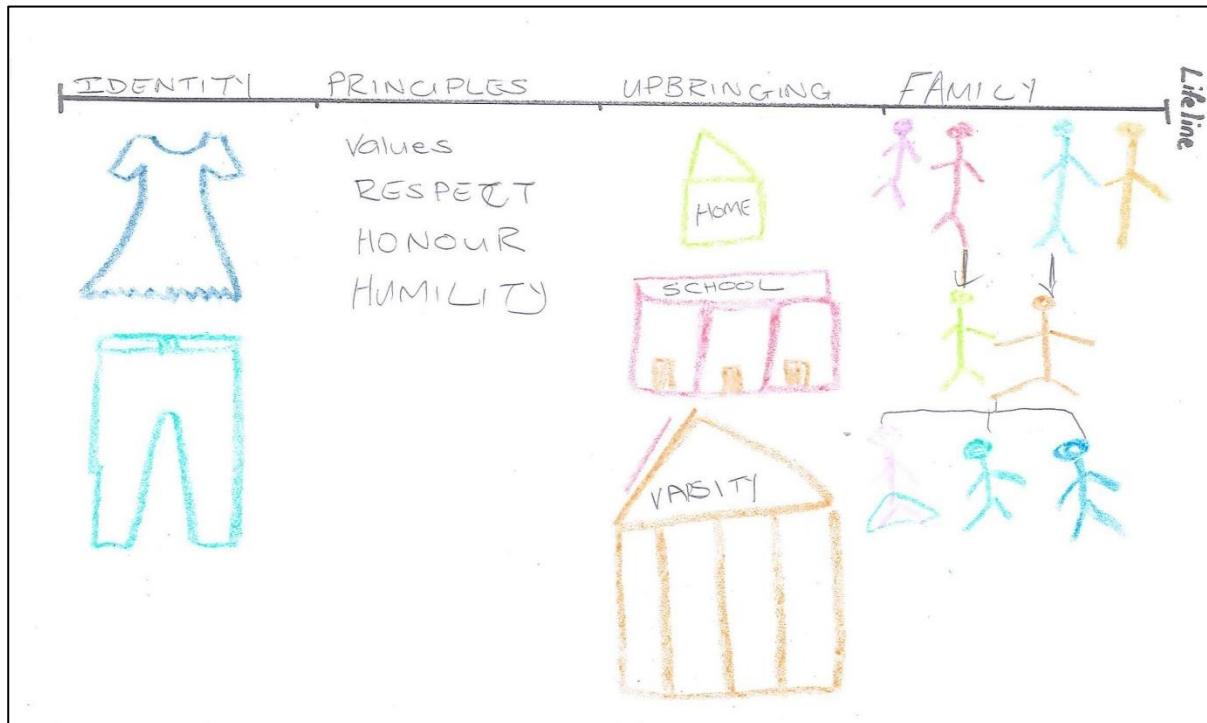 IDENTITY PRINCIPLES UPBRINGING FAMILY
Lifeline
Values
RESPECT
HONOUR
HUMILITY
HOME
SCHOOL
VARSITY